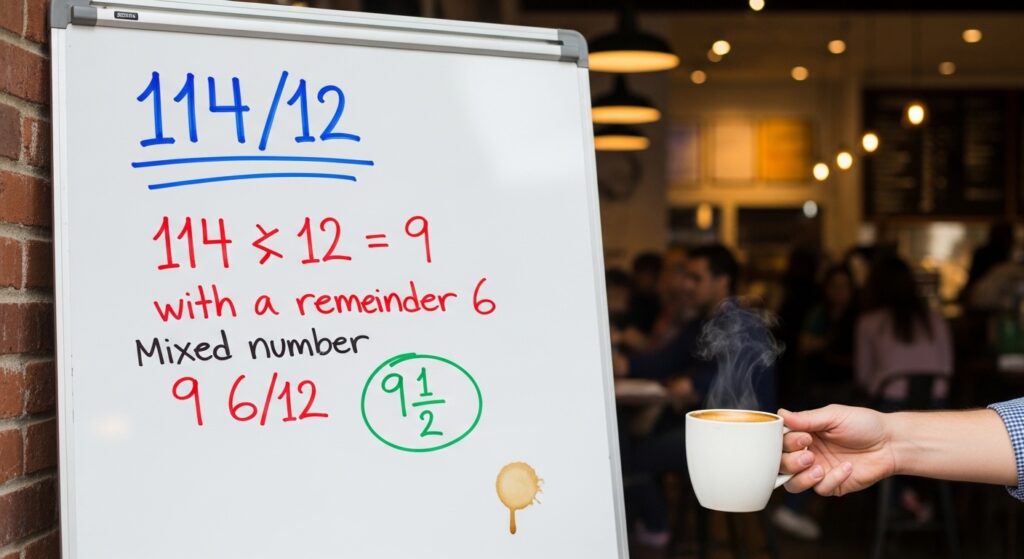 114/12
114 × 12 = 9
with a remeinder 6
Mixed number
9 6/12
9 1/2